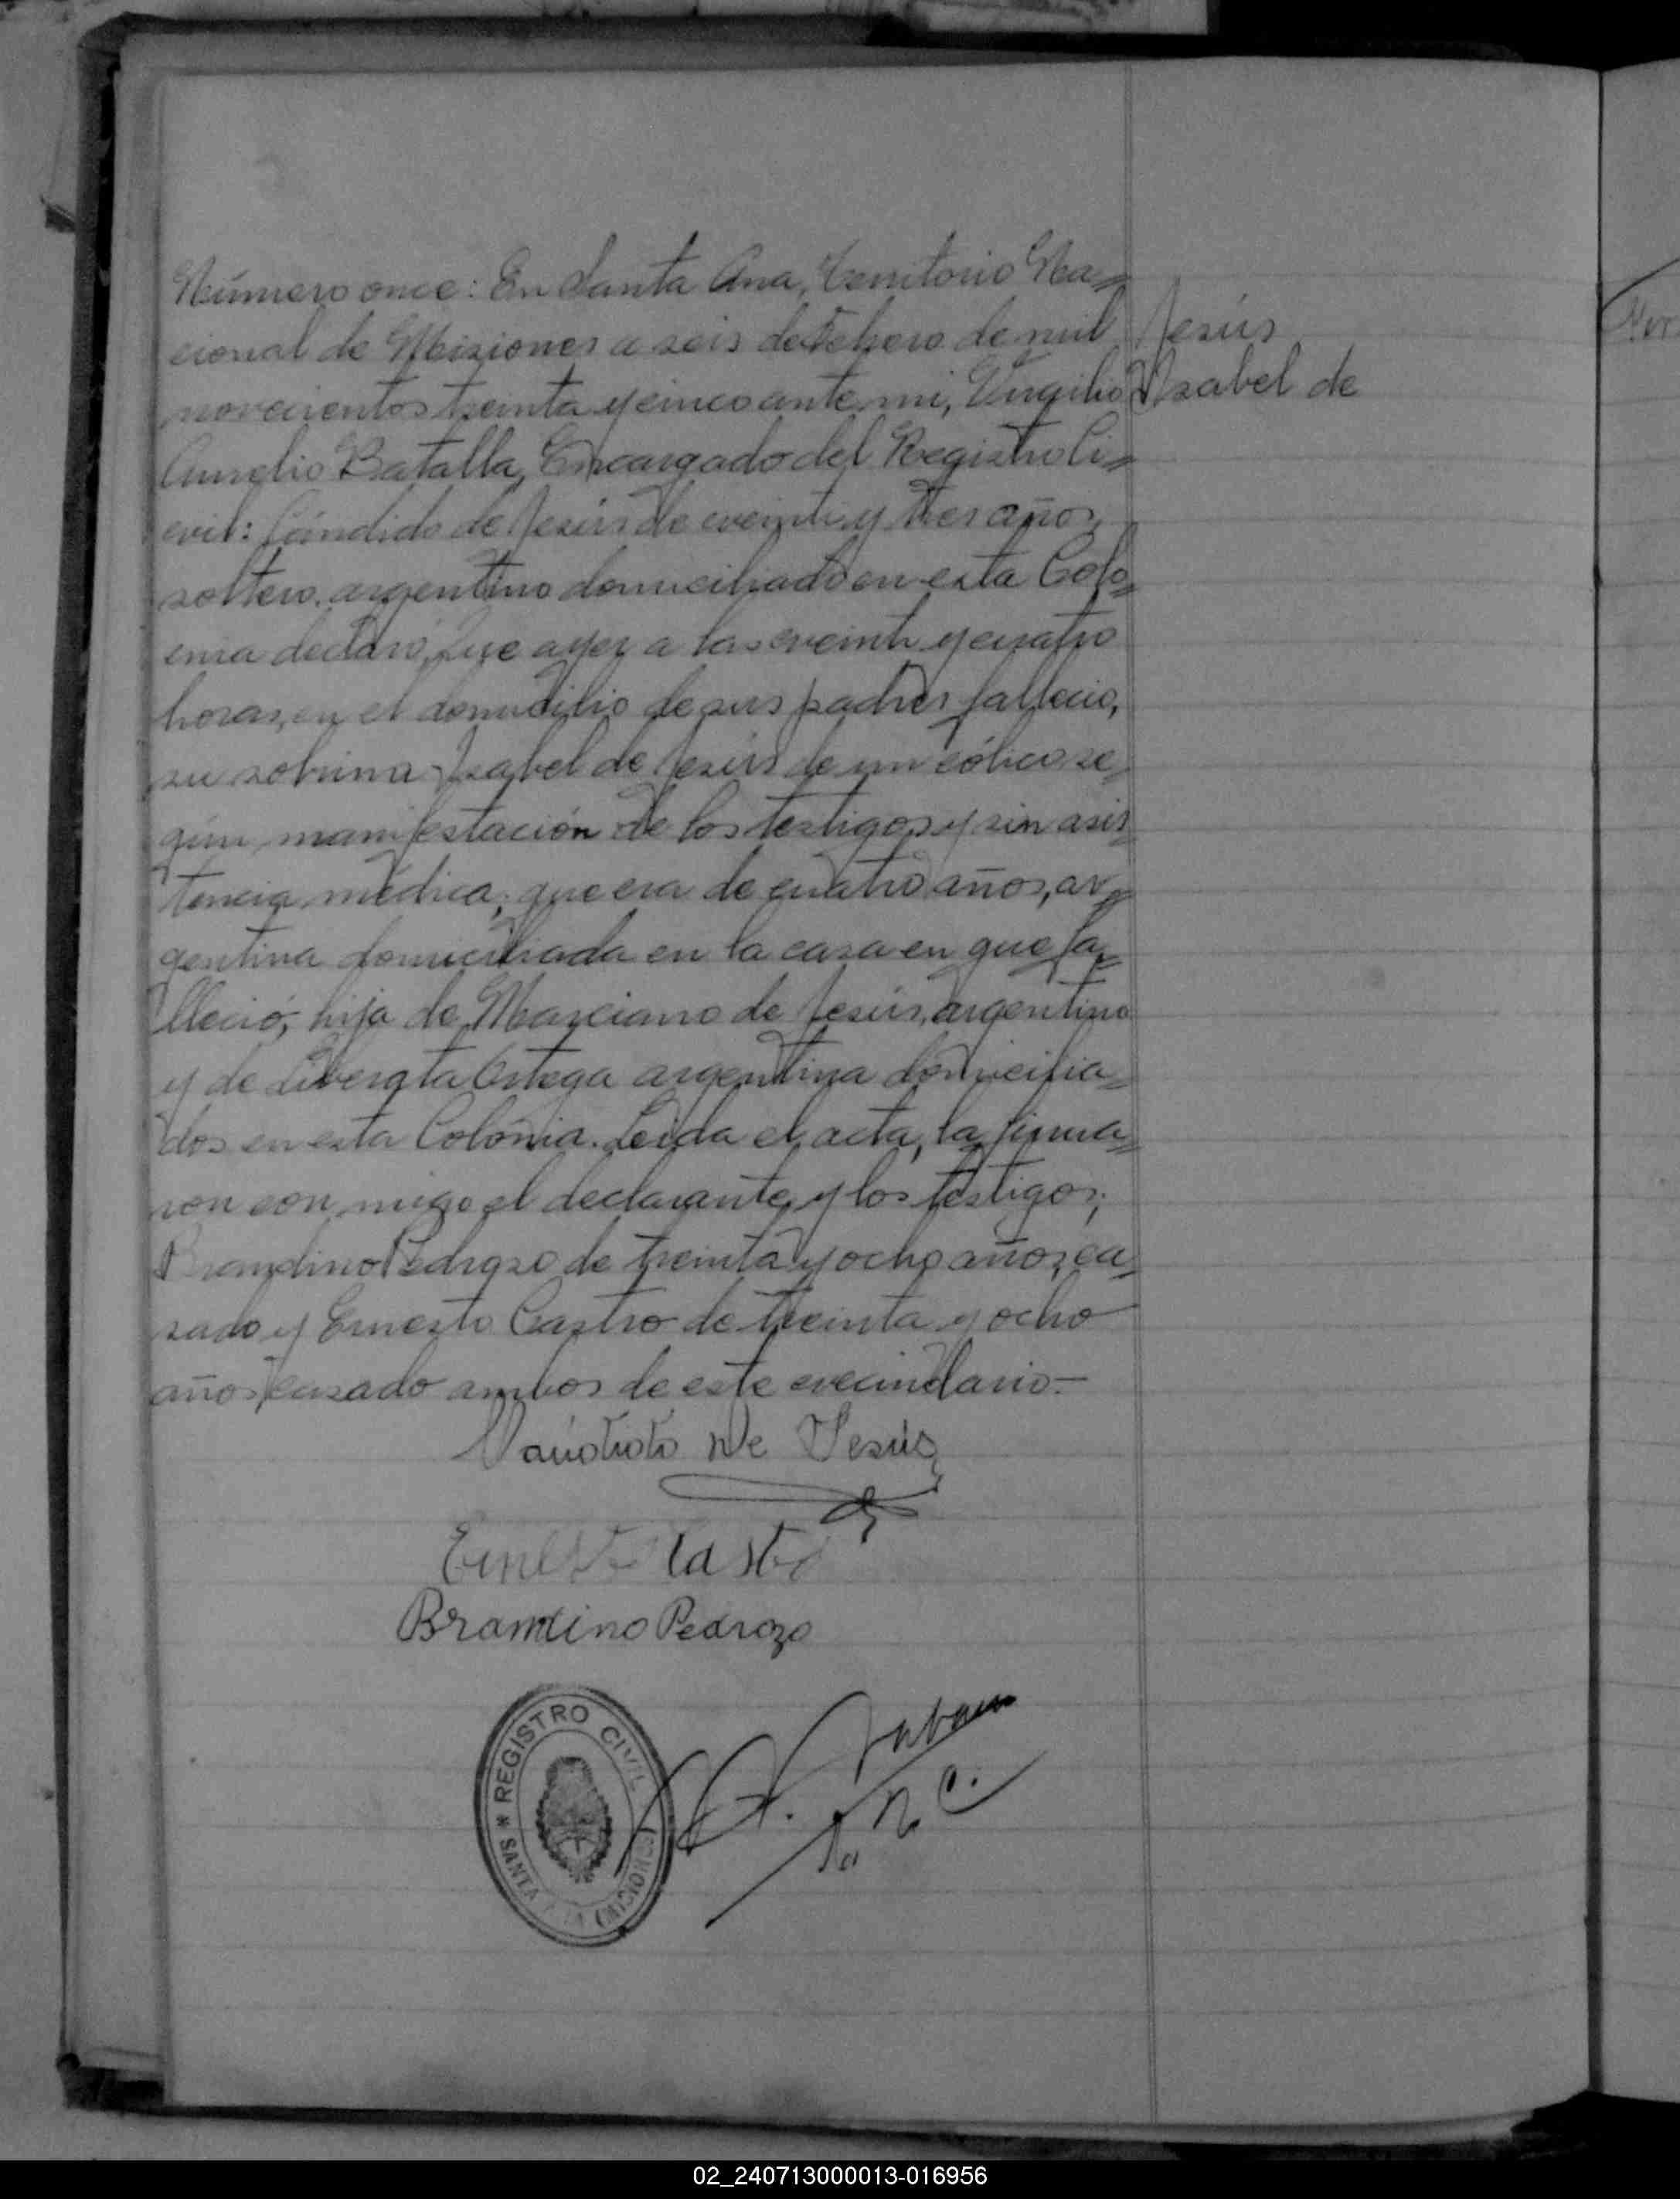 Número once: En Santa Ana, Territorio Na=
cional de Misiones a seis de Febrero de mil
novecientos treinta y cinco ante mi, Virgilio
Aurelio Batalla, Encargado del Registro Ci=
vil: Cándido de Jesús de veinte y tres años,
soltero, argentino domiciliado en esta Colo=
nia declaró, que ayer a las veinte y cuatro
horas, en el domicilio de sus padres fallecio,
su sobrina Isabel de Jesús de un cólico se=
gún manifestación de los testigos y sin asis=
tencia médica; que era de cuatro años, ar=
gentina domiciliada en la casa en que fa=
lleció, hija de Marciano de Jesús, argentino
y de Liberata Ortega argentina domicilia=
dos en esta Colónia. Leida el acta, la firma=
ron con migo el declarante y los testigos;
Brandino Pedrozo de treinta y ocho años, ca=
sado y Ernesto Castro de treinta y ocho
años, casado ambos de este vecindario.-
Jesús
Isabel de
De Jesús
Ernesto Castro
Brandino Pedrozo
REGISTRO CIVIL
SANTA (MICIONES)
02_240713000013-016956